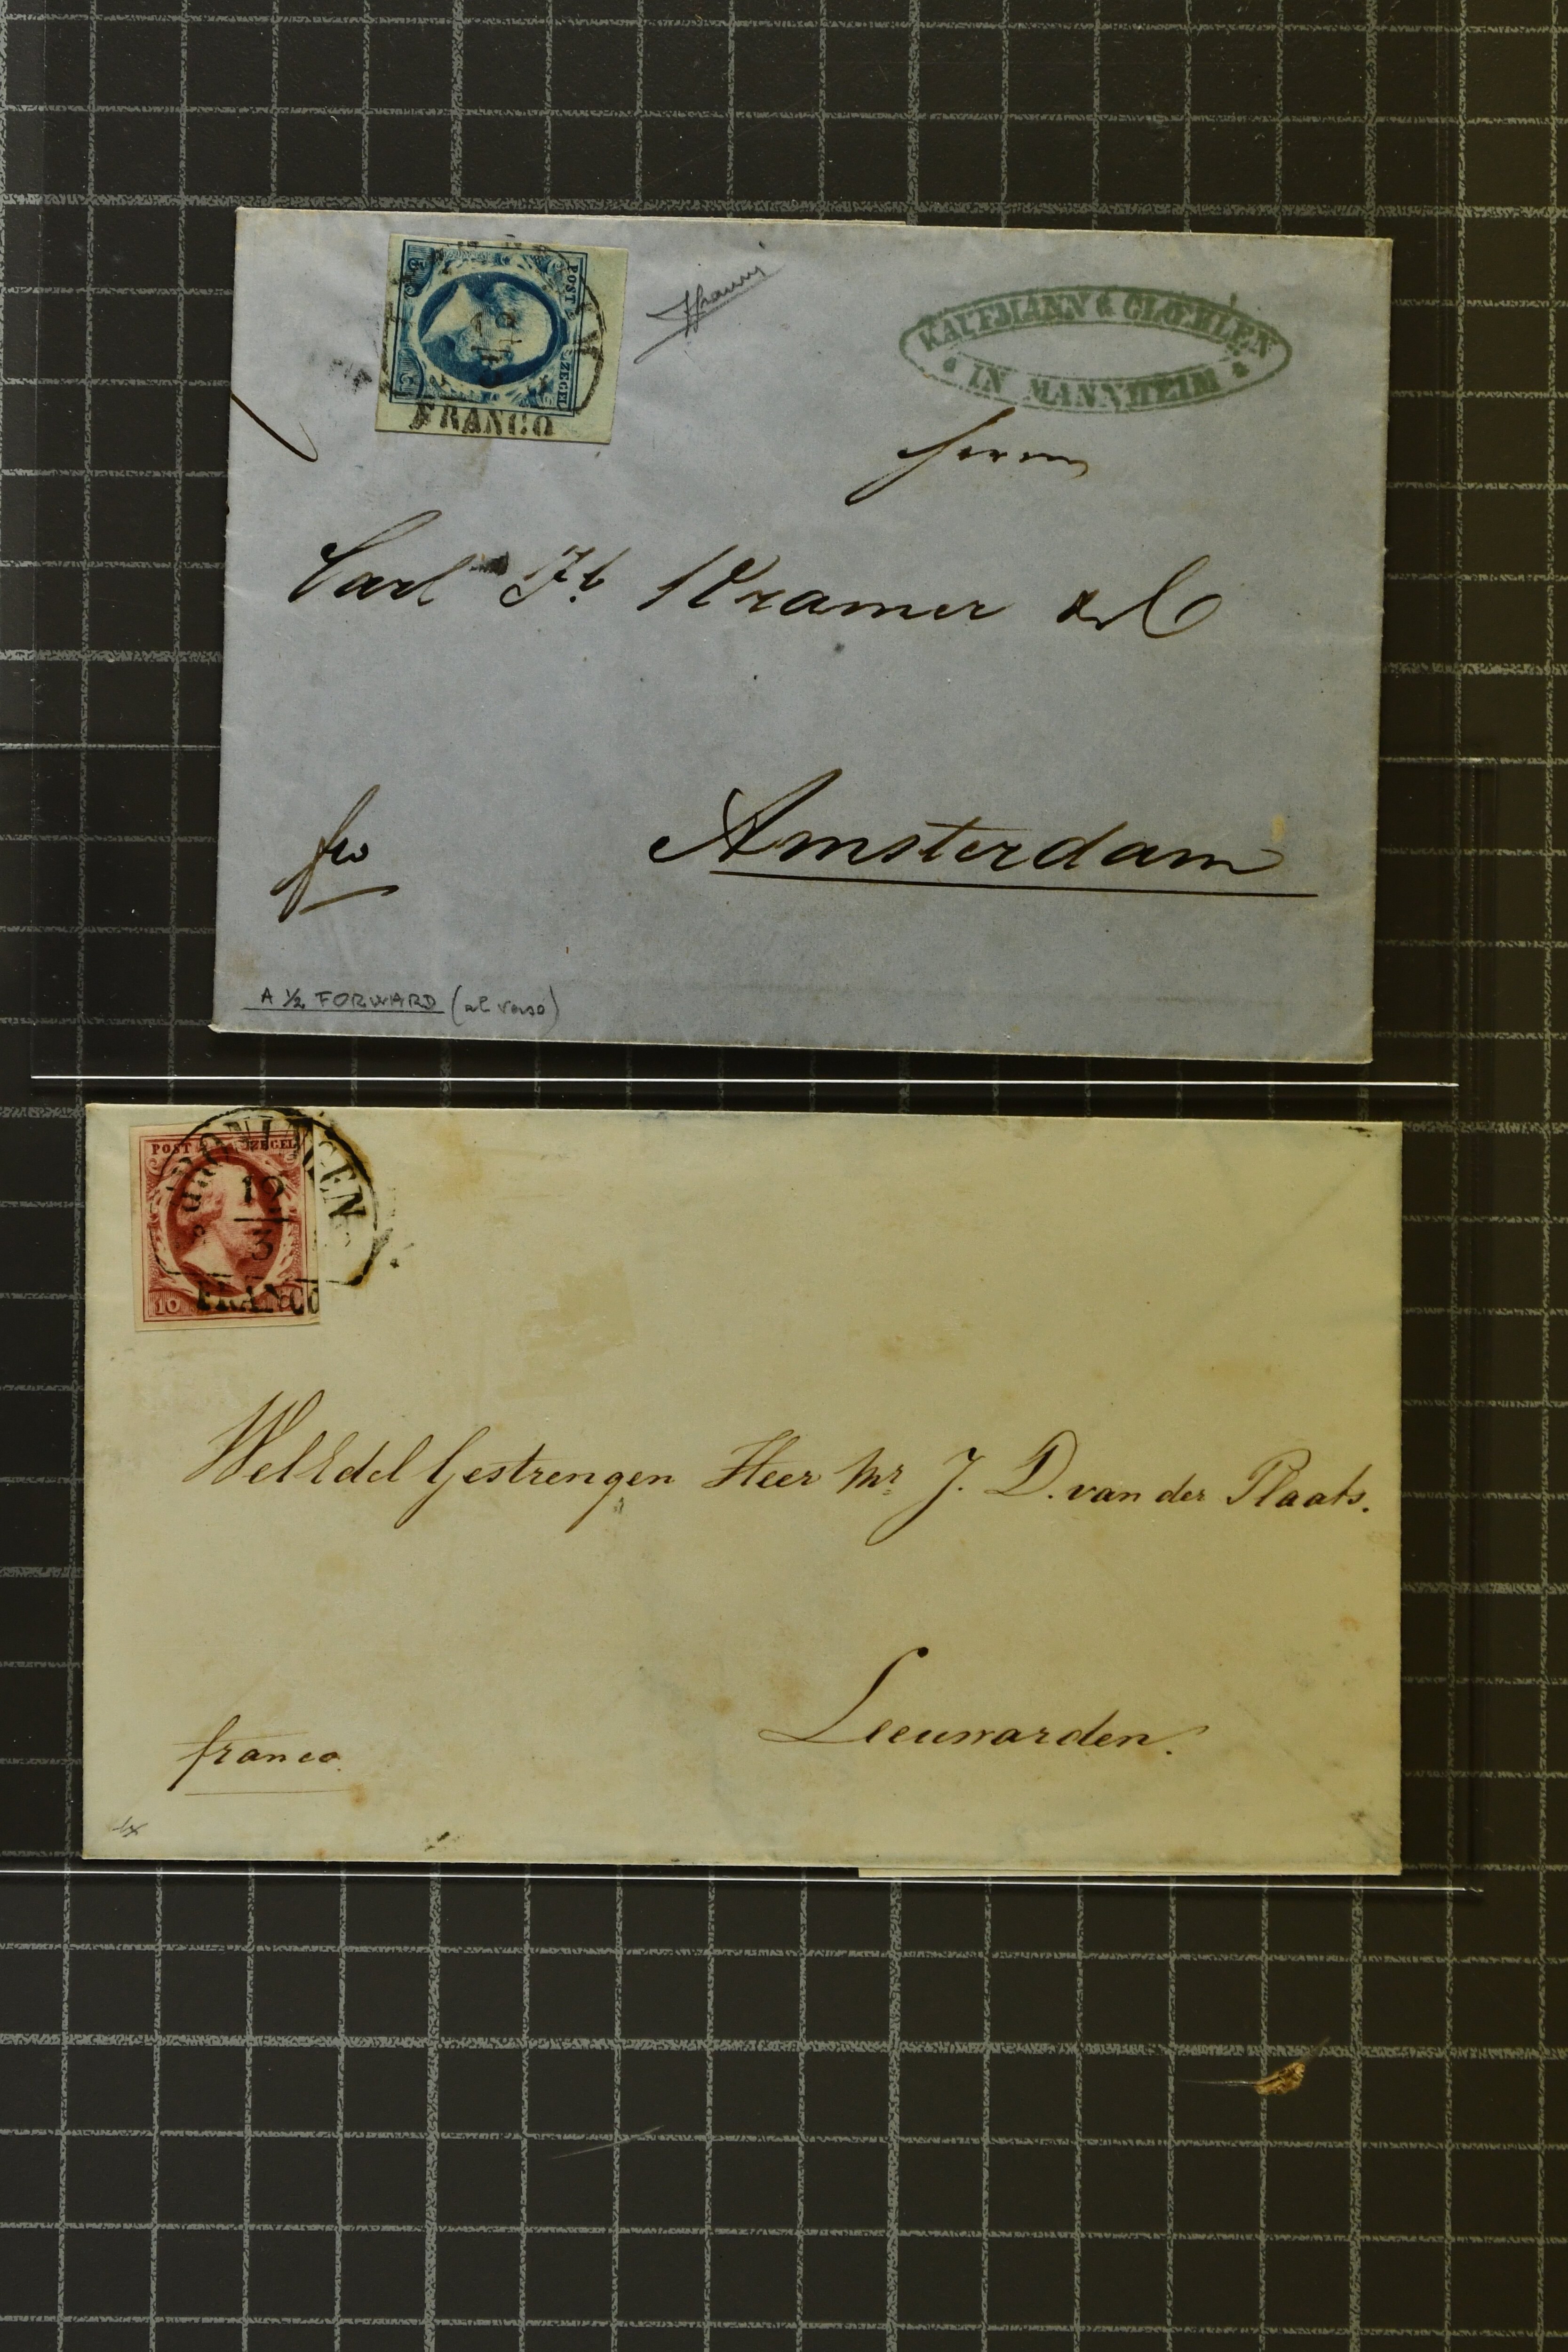 POST ZEGEL
5
FRANCO
KAUFMANN & CLŒHLEN
IN MANNHEIM
Herrn
Carl Fr. Kramer & C
Amsterdam
fco
A ½ FORWARD (al verso)
POST ZEGEL
GRONINGEN
12
3
FRANCO
10
WelEdel Gestrengen Heer Mr. J. D. van der Plaats.
Leeuwarden.
franco.